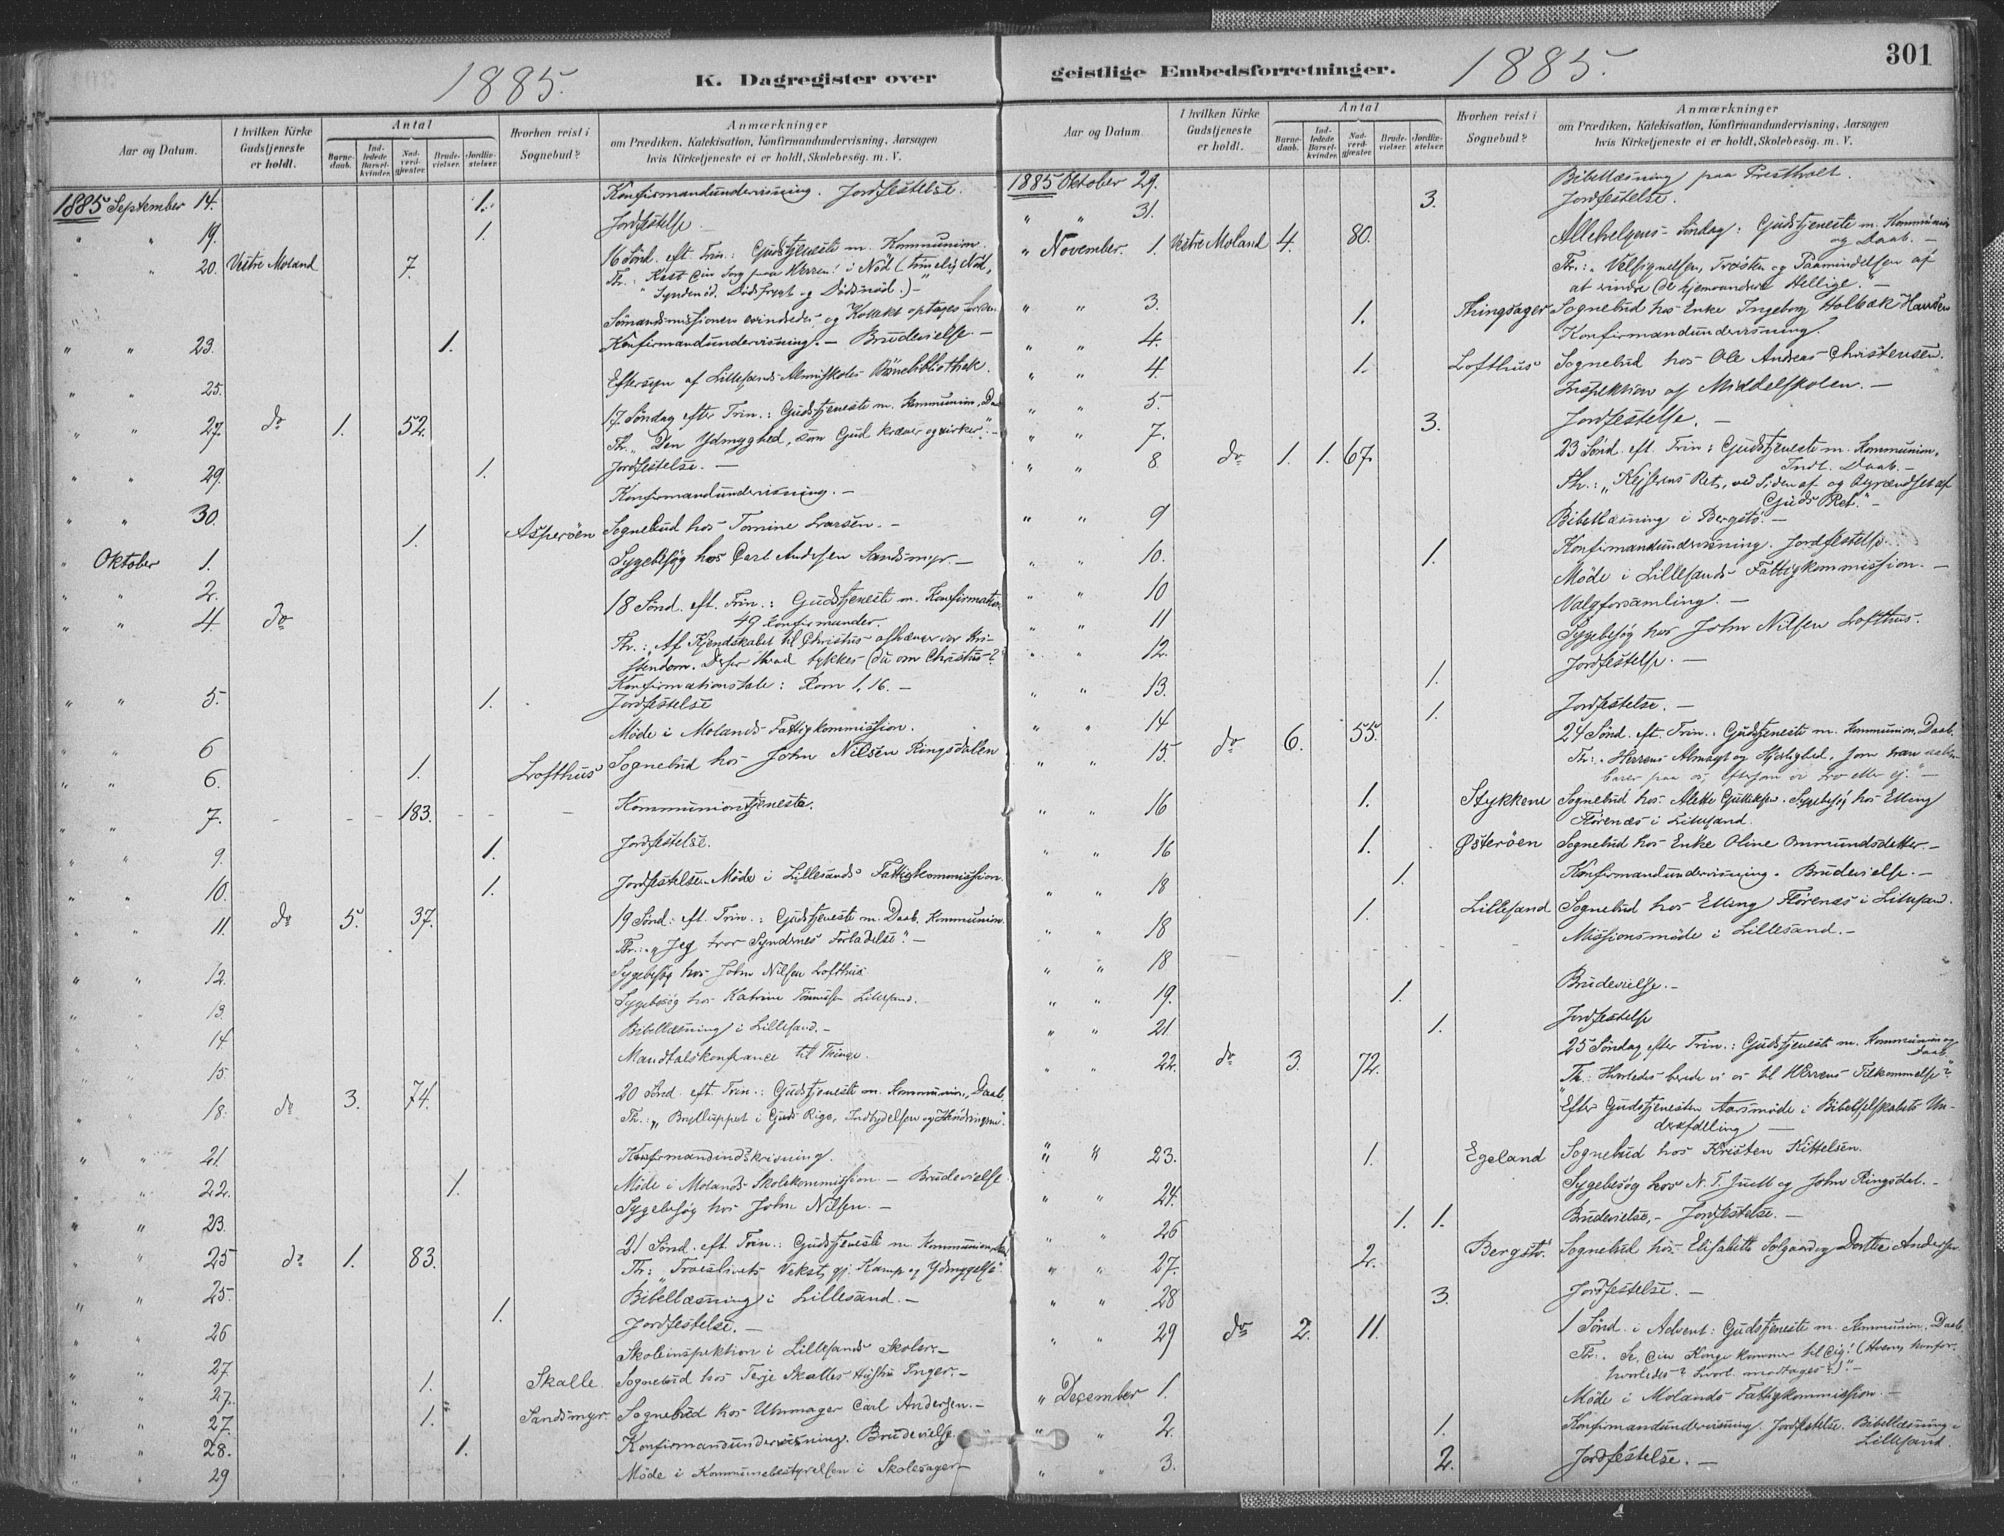 1885. K. Dagregister over
Aar og Datum. I hvilken Kirke Gudstjeneste er holdt. Antal Barnedaab. Indledede Barselkvinder. Nadverdgjester. Brudevielser. Jordfæstelser. Hvorhen reist i Sognebud? Anmærkninger om Prædiken, Katekisation, Konfirmandundervisning, Aarsagen hvis Kirketjeneste ei er holdt, Skolebesøg. m. V.
1885 September 14. 1. Konfirmandundervisning. Jordfestelse.
" " 19. 1. Jordfestelse
" " 20. Vestre Moland 7. 16 Sönd. eft. Trin.: Gudstjeneste m. Kommunion.
Th.: "Kast Din Sorg paa Herren! i Nöd (timelig Nöd,
Syndenöd, Dödsfrygt og Dödsnöd.)-
Sömandsmissionen erindredes og Kollekt optages
" " 23. 1. Konfirmandundervisning. - Brudevielse. -
" " 25. Eftersyn af Lillesands Almuskoles Börnebibliothek.
" " 27. do 1. 52. 17. Söndag efter Trin.: Gudstjeneste m. Kommunion, Daab
Th. "Den Ydmyghed, som Gud kræver og virker". -
" " 29. 1. Jordfestelse. -
" " 30. Konfirmandundervisning. -
1. Asperöen Sognebud hos Tomine Larsen. -
" Oktober 1. Sygebesög hos Carl Andersen Sandsmyr. -
" " 2.
" " 4. do 18 Sönd. eft. Trin.: Gudstjeneste m. Konfirmation
49 Konfirmander.
Th.: Af Kjendskabet til Christus afhænger vor Kri-
stendom. Derfor Hvad tykkes du om Christus?
Konfirmationstale: Rom 1,16. -
" " 5. 1. Jordfestelse
" " 6 Möde i Molands Fattigkommission.
" " 6. 1. Lofthus Sognebud hos John Nilsen Ringsdalen
" " 7. - - - 183. - - - Kommuniontjeneste.
" " 9. 1. Jordfestelse.
" " 10. 1. Jordfestelse. Möde i Lillesands Fattigkommission.
" " 11. do 5. 37. 19 Sönd. eft. Trin.: Gudstjeneste m. Daab, Kommunion.
Th.: "Jeg tror Syndernes Forladelse". -
" " 12. Sygebesög hos John Nilsen Lofthus.
" " 13. Sygebesög hos Katrine Lillesand.
" " 14. Bibellæsning i Lillesand. -
" " 15. Mandtalskonfrance til Thinge.
" " 18. do 3. 74. 20 Sönd. eft. Trin.: Gudstjeneste m. Kommunion, Daab.
Th.: "Brylluppet i Guds Rige, Indbydelsen og
" " 21. Konfirmandindskrivning.
" " 22. 1. Möde i Molands Skolekommission - Brudevielse
" " 23. Sygebesög hos John Nilsen. -
" " 25 do 1. 83. 21 Sönd. eft. Trin.: Gudstjeneste m. Kommunion,
Th.: "Troeslivets Vekst gj. Kamp og Ydmygelse"
" " 25. Bibellæsning i Lillesand. -
" " 26 1. Jordfestelse. -
" " 27. Skoleinspektion i Lillesands Skoler. -
" " 27. 1. Skalle. Sognebud hos Terje Skalles Hustru Inger. -
" " 27. 1. Sandsmyr. Sognebud hos Uhrmager Carl Andersen. -
" " 28. 1. Konfirmandundervisning. Brudevielse.
" " 29 Möde i Kommunebestyrelsen i Skolesager
geistlige Embedsforretninger. 1885. 301
Aar og Datum. I hvilken Kirke Gudstjeneste er holdt. Antal Barnedaab. Indledede Barselkvinder. Nadverdgjester. Brudevielser. Jordfæstelser. Hvorhen reist i Sognebud? Anmærkninger om Prædiken, Katekisation, Konfirmandundervisning, Aarsagen hvis Kirketjeneste ei er holdt, Skolebesøg. m. V.
1885 Oktober 29. Bibellæsning paa Prestholt.
" " 31. 3. Jordfestelse.
" November. 1. Vestre Moland 4. 80. Allehelgens Söndag: Gudstjeneste m. Kommunion
og Daab. -
Th.: "Velsignelsen, Trösten og Paamindelsen af
at erindre de hjemvandrede Hellige."
" " 3. 1. Thingsager Sognebud hos Enke Ingeborg Holbæk Hansen
" " 4. Konfirmandundervisning.
" " 4. 1. Lofthus Sognebud hos Ole Andreas Christensen.
" " 5. Inspektion af Middelskolen. -
" " 7. 3. Jordfestelse. -
" " 8. do 1. 1. 67. 23 Sönd. eft. Trin.: Gudstjeneste m. Kommunion,
Indl. Daab. -
Th.: "Kejserens Ret, ved Siden af og begrændset af
Guds Ret." -
" " 9 Bibellæsning i Bergstö. -
" " 10. 1. Konfirmandundervisning. Jordfestelse.
" " 10 Möde i Lillesands Fattigkommission. -
" " 11 Valgforsamling. -
" " 12. Sygebesög hos John Nilsen Lofthus.
" " 13. 1. Jordfestelse. -
" " 14 1. Jordfestelse. -
" " 15. do 6. 55. 24 Sönd. eft. Trin.: Gudstjeneste m. Kommunion, Daab.
Th.: "Herrens Almagt og Kjerlighed, som han
barer paa os, eftersom vi tro eller ej." -
" " 16 1. Stykkene Sognebud hos Alette Gjuttelsen. Sygebesög hos Elling
Flörenæs i Lillesand.
" " 16 1. Østeröen Sognebud hos Enke Oline Ommundsdatter. -
" " 18 1. Konfirmandundervisning. Brudevielse. -
" " 18 1. Lillesand Sognebud hos Elling Flörenæs i Lillesand.
" " 18 Missionsmöde i Lillesand. -
" " 19. 1. Brudevielse. -
" " 21 1. Jordfestelse
" " 22. do 3. 72. 25 Söndag efter Trin.: Gudstjeneste m. Kommunion og
Daab.
Th.: Hvorledes berede vi os til Herrens Tilkommelse"?
Efter Gudstjenesten Aarsmöde i Bibelselskabets Un-
derafdeling -
" " 23. 1. Egeland Sognebud hos Kristen Kittelsen.
" " 24. Sygebesög hos N. T. Juell og John Ringsdal. -
" " 26 1. 1. Brudevielse, - Jordfestelse. -
" " 27. 2. Bergstö. Sognebud hos Elisabeth Solgaard og Dorthe Andersen.
" " 28 3. Jordfestelse. -
" " 29 do 2. 11. 1 Sönd. i Advent: Gudstjeneste m. Kommunion, Daab.
Th.: "Se, Din Konge kommer til Dig! (Hvem, hvorfor,
hvorledes? hvorl. modtages?)" -
" December 1. Möde i Molands Fattigkommission. -
" " 2. 1. Konfirmandundervisning. Jordfestelse. Bibellæsning i
Lillesand.
" " 3. 2. Jordfestelse. -